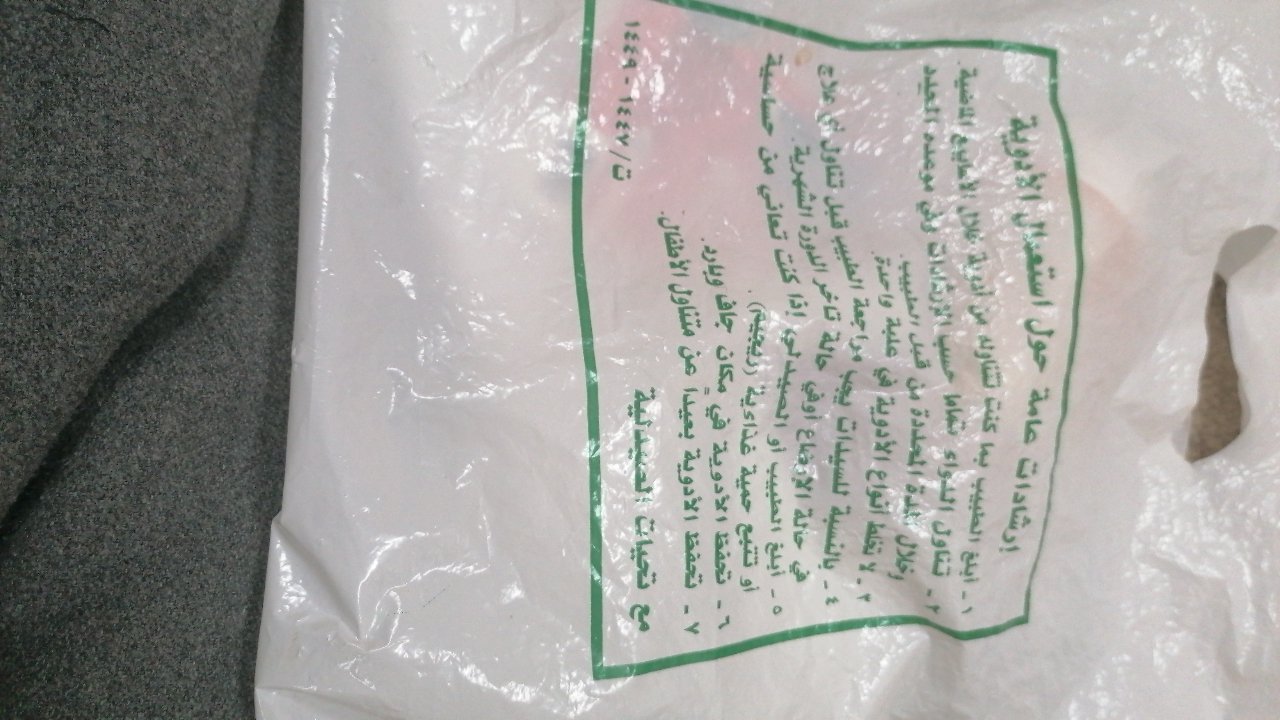 إرشادات عامة حول استعمال الأدوية
١ - أبلغ الطبيب بما كنت تتناوله من أدوية خلال الأسابيع الماضية.
٢ - تناول الدواء تماما حسب الإرشادات وفي موعده المحدد
وخلال المدة المحددة من قبل الطبيب.
٣ - لا تخلط أنواع الأدوية في علبة واحدة
٤ - بالنسبة للسيدات يجب مراجعة الطبيب قبل تناول أي علاج
في حالة الإرضاع أوفي حالة تأخر الدورة الشهرية.
٥ - أبلغ الطبيب أو الصيدلي إذا كنت تعاني من حساسية
أو تتبع حمية غذائية (ريجيم).
٦ - تحفظ الأدوية في مكان جاف وبارد.
٧ - تحفظ الأدوية بعيدا عن متناول الأطفال.
مع تحيات الصيدلية
ت/١٤٤٧ - ١٤٤٩